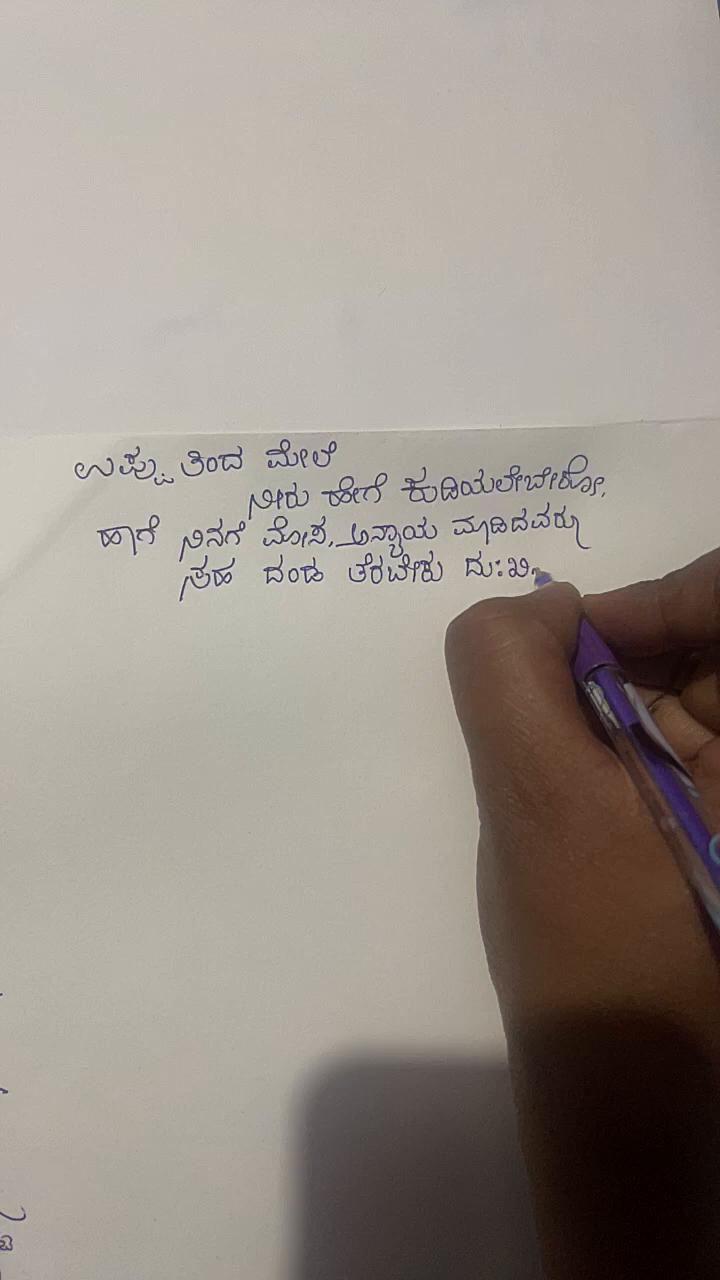 ಉಪ್ಪು ತಿಂದ ಮೇಲೆ
ನೀರು ಹೇಗೆ ಕುಡಿಯಲೇಬೇಕೋ,
ಹಾಗೆ ನಿನಗೆ ಮೋಸ, ಅನ್ಯಾಯ ಮಾಡಿದವರು
ಸಹ ದಂಡ ತೆರಬೇಕು